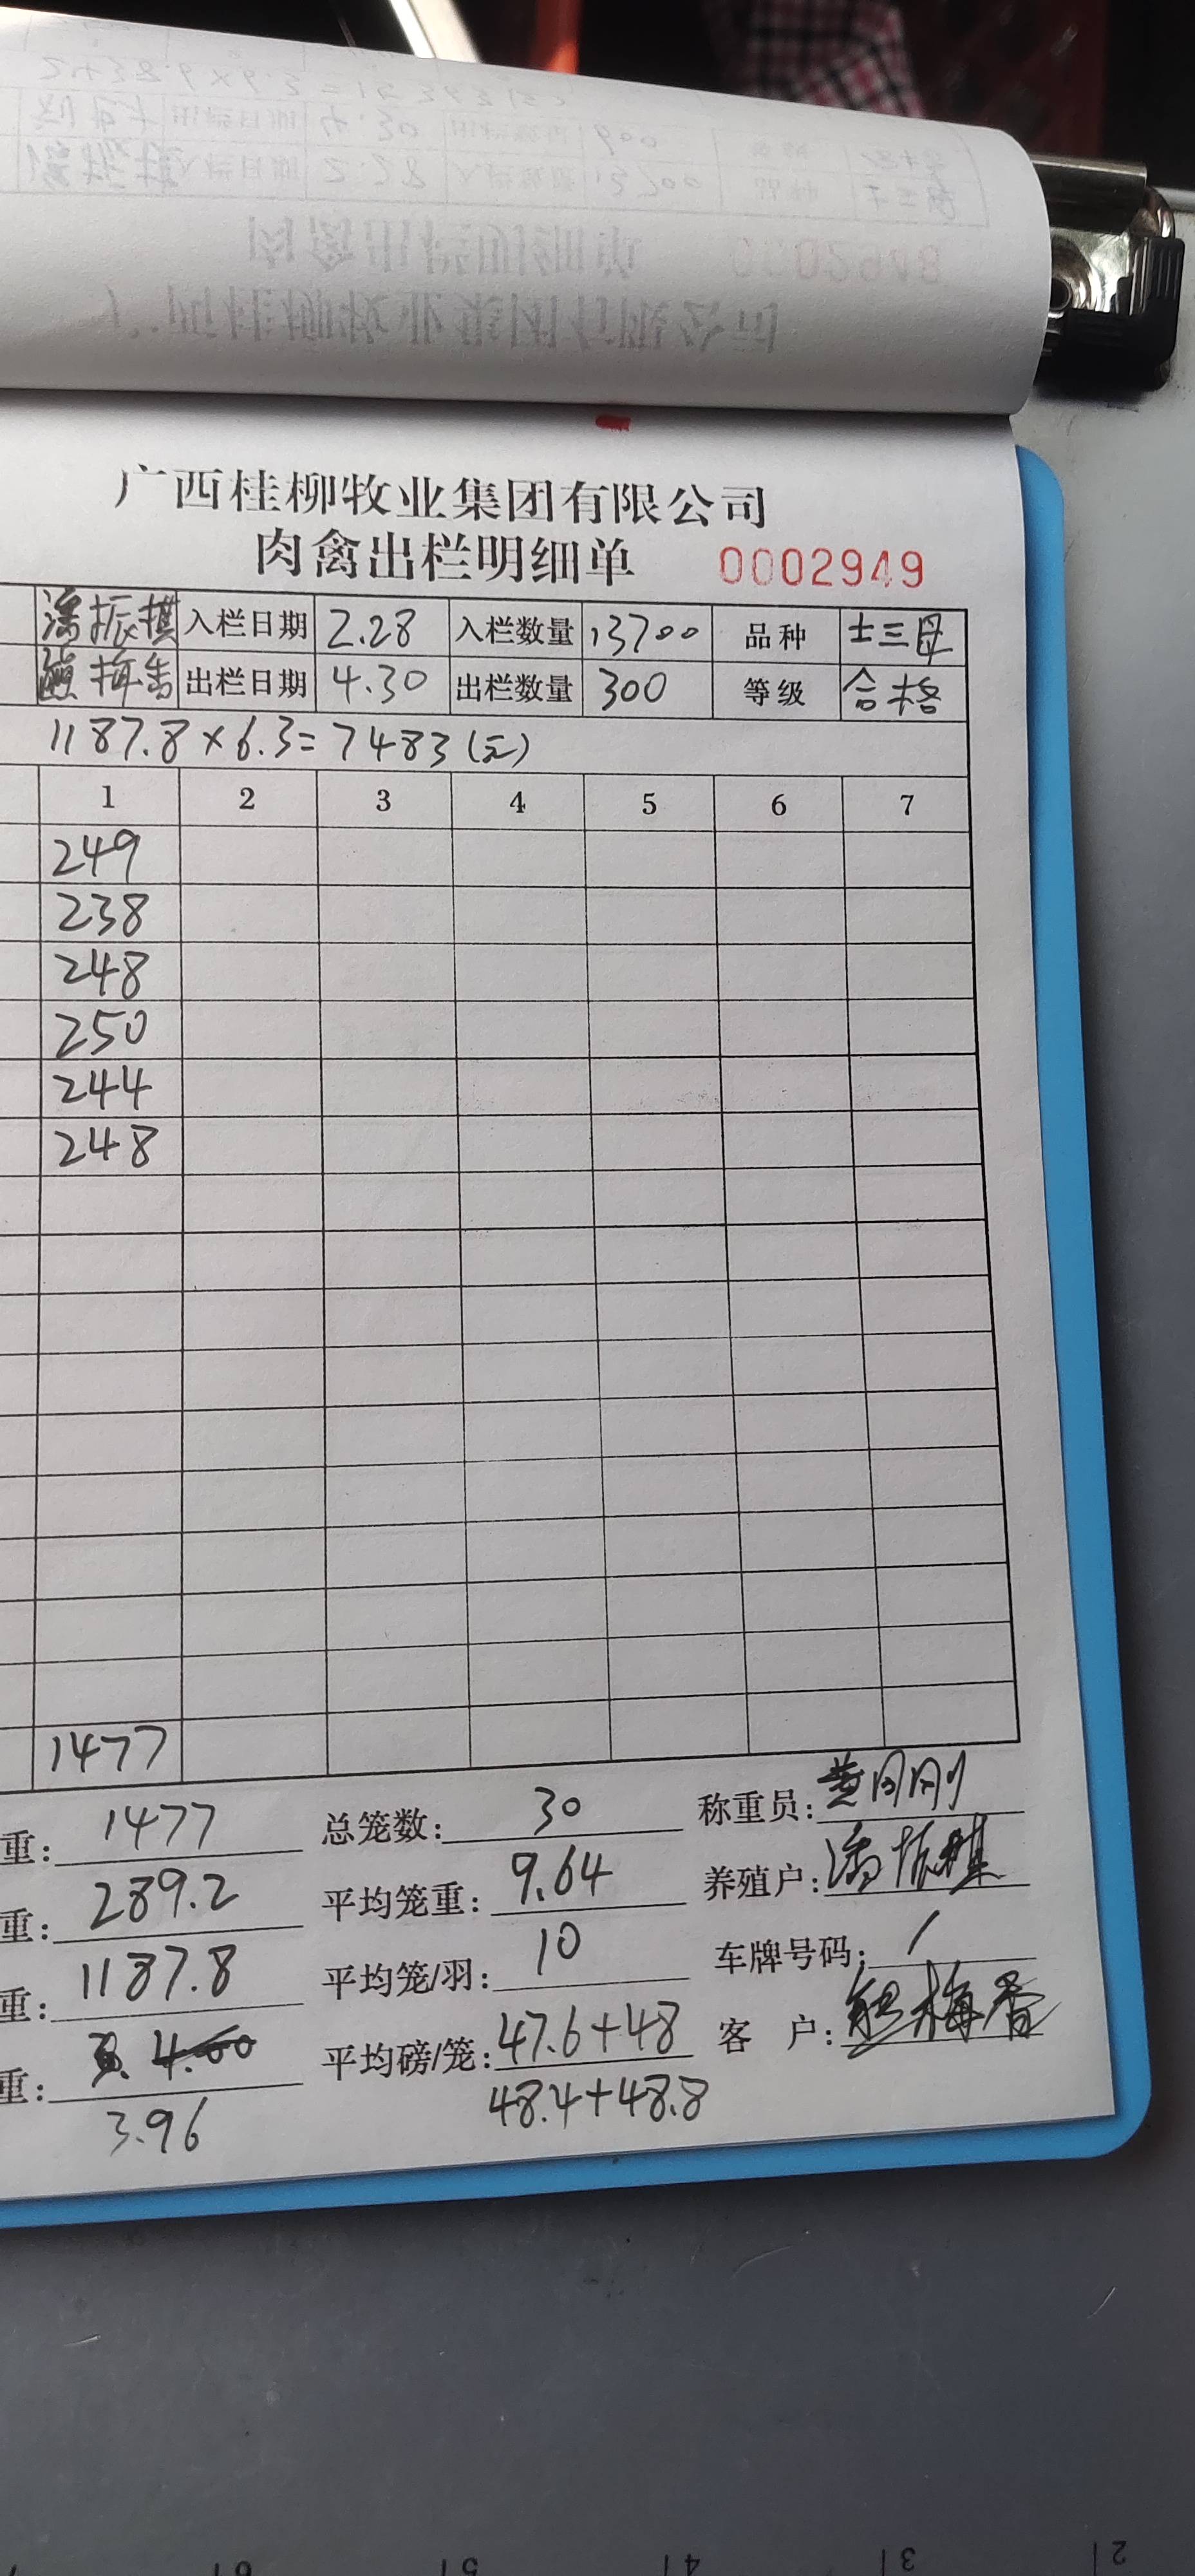 广西桂柳牧业集团有限公司
肉禽出栏明细单 0002949
潘振棋 入栏日期 2.28 入栏数量 13700 品种 土三母
熊梅香 出栏日期 4.30 出栏数量 300 等级 合格
1187.8×6.3=7483(元)
1 2 3 4 5 6 7
249
238
248
250
244
248
1477
重: 1477 总笼数: 30 称重员:
重: 289.2 平均笼重: 9.64 养殖户: 潘振棋
重: 1187.8 平均笼/羽: 10 车牌号码: /
重: 4.00 平均磅/笼: 47.6+48 客 户: 熊梅香
3.96 48.4+48.8